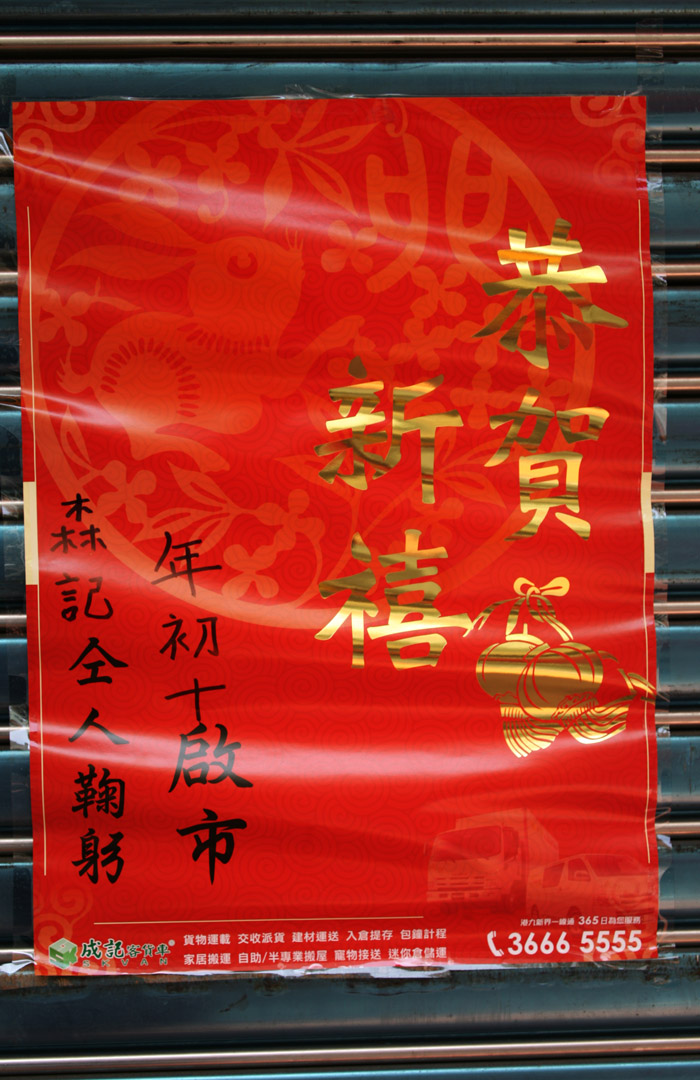 恭賀
新禧
年初十啟市
森記仝人鞠躬
成記客貨車®
SKVAN
貨物運載 交收派貨 建材運送 入倉提存 包鐘計程
家居搬運 自助/半專業搬屋 寵物接送 迷你倉儲運
港九新界一線通 365日為您服務
3666 5555